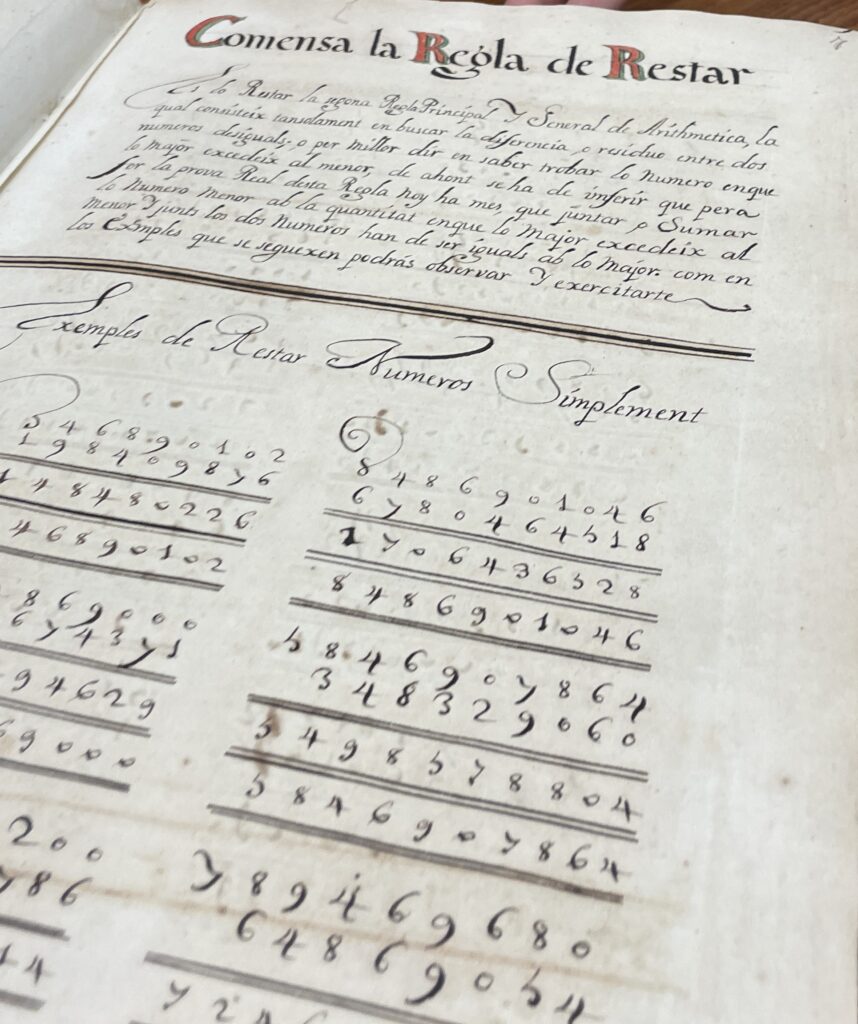 Comensa la Regla de Restar
Es lo Restar la segona Regla Principal Y General de Arithmetica, la
qual consisteix tansolament en buscar la diferencia, o residuo entre dos
numeros desiguals, o per millor dir en saber trobar lo numero enque
lo major excedeix al menor, de ahont se ha de inferir que pera
fer la prova Real desta Regla noy ha mes, que juntar o Sumar
lo Numero menor ab la quantitat enque lo Major excedeix al
menor Y junts los dos Numeros han de ser iguals ab lo Major. com en
los Exemples que se seguexen podrás observar Y exercitarte
Exemples de Restar Numeros Simplement
3 4 6 8 9 0 1 0 2
1 9 8 4 0 9 8 7 6
1 4 8 4 8 0 2 2 6
4 6 8 9 0 1 0 2
8 6 9 0 0 0
6 7 4 3 7 1
9 4 6 2 9
6 9 0 0 0
2 0 0
7 8 6
1 4
8 4 8 6 9 0 1 0 4 6
6 7 8 0 4 6 4 5 1 8
1 7 0 6 4 3 6 5 2 8
8 4 8 6 9 0 1 0 4 6
5 8 4 6 9 0 7 8 6 4
3 4 8 3 2 9 0 6 0
5 4 9 8 5 7 8 8 0 4
5 8 4 6 9 0 7 8 6 4
7 8 9 4 6 9 6 8 0
6 4 8 6 9 0 5 4
7 2 4 6